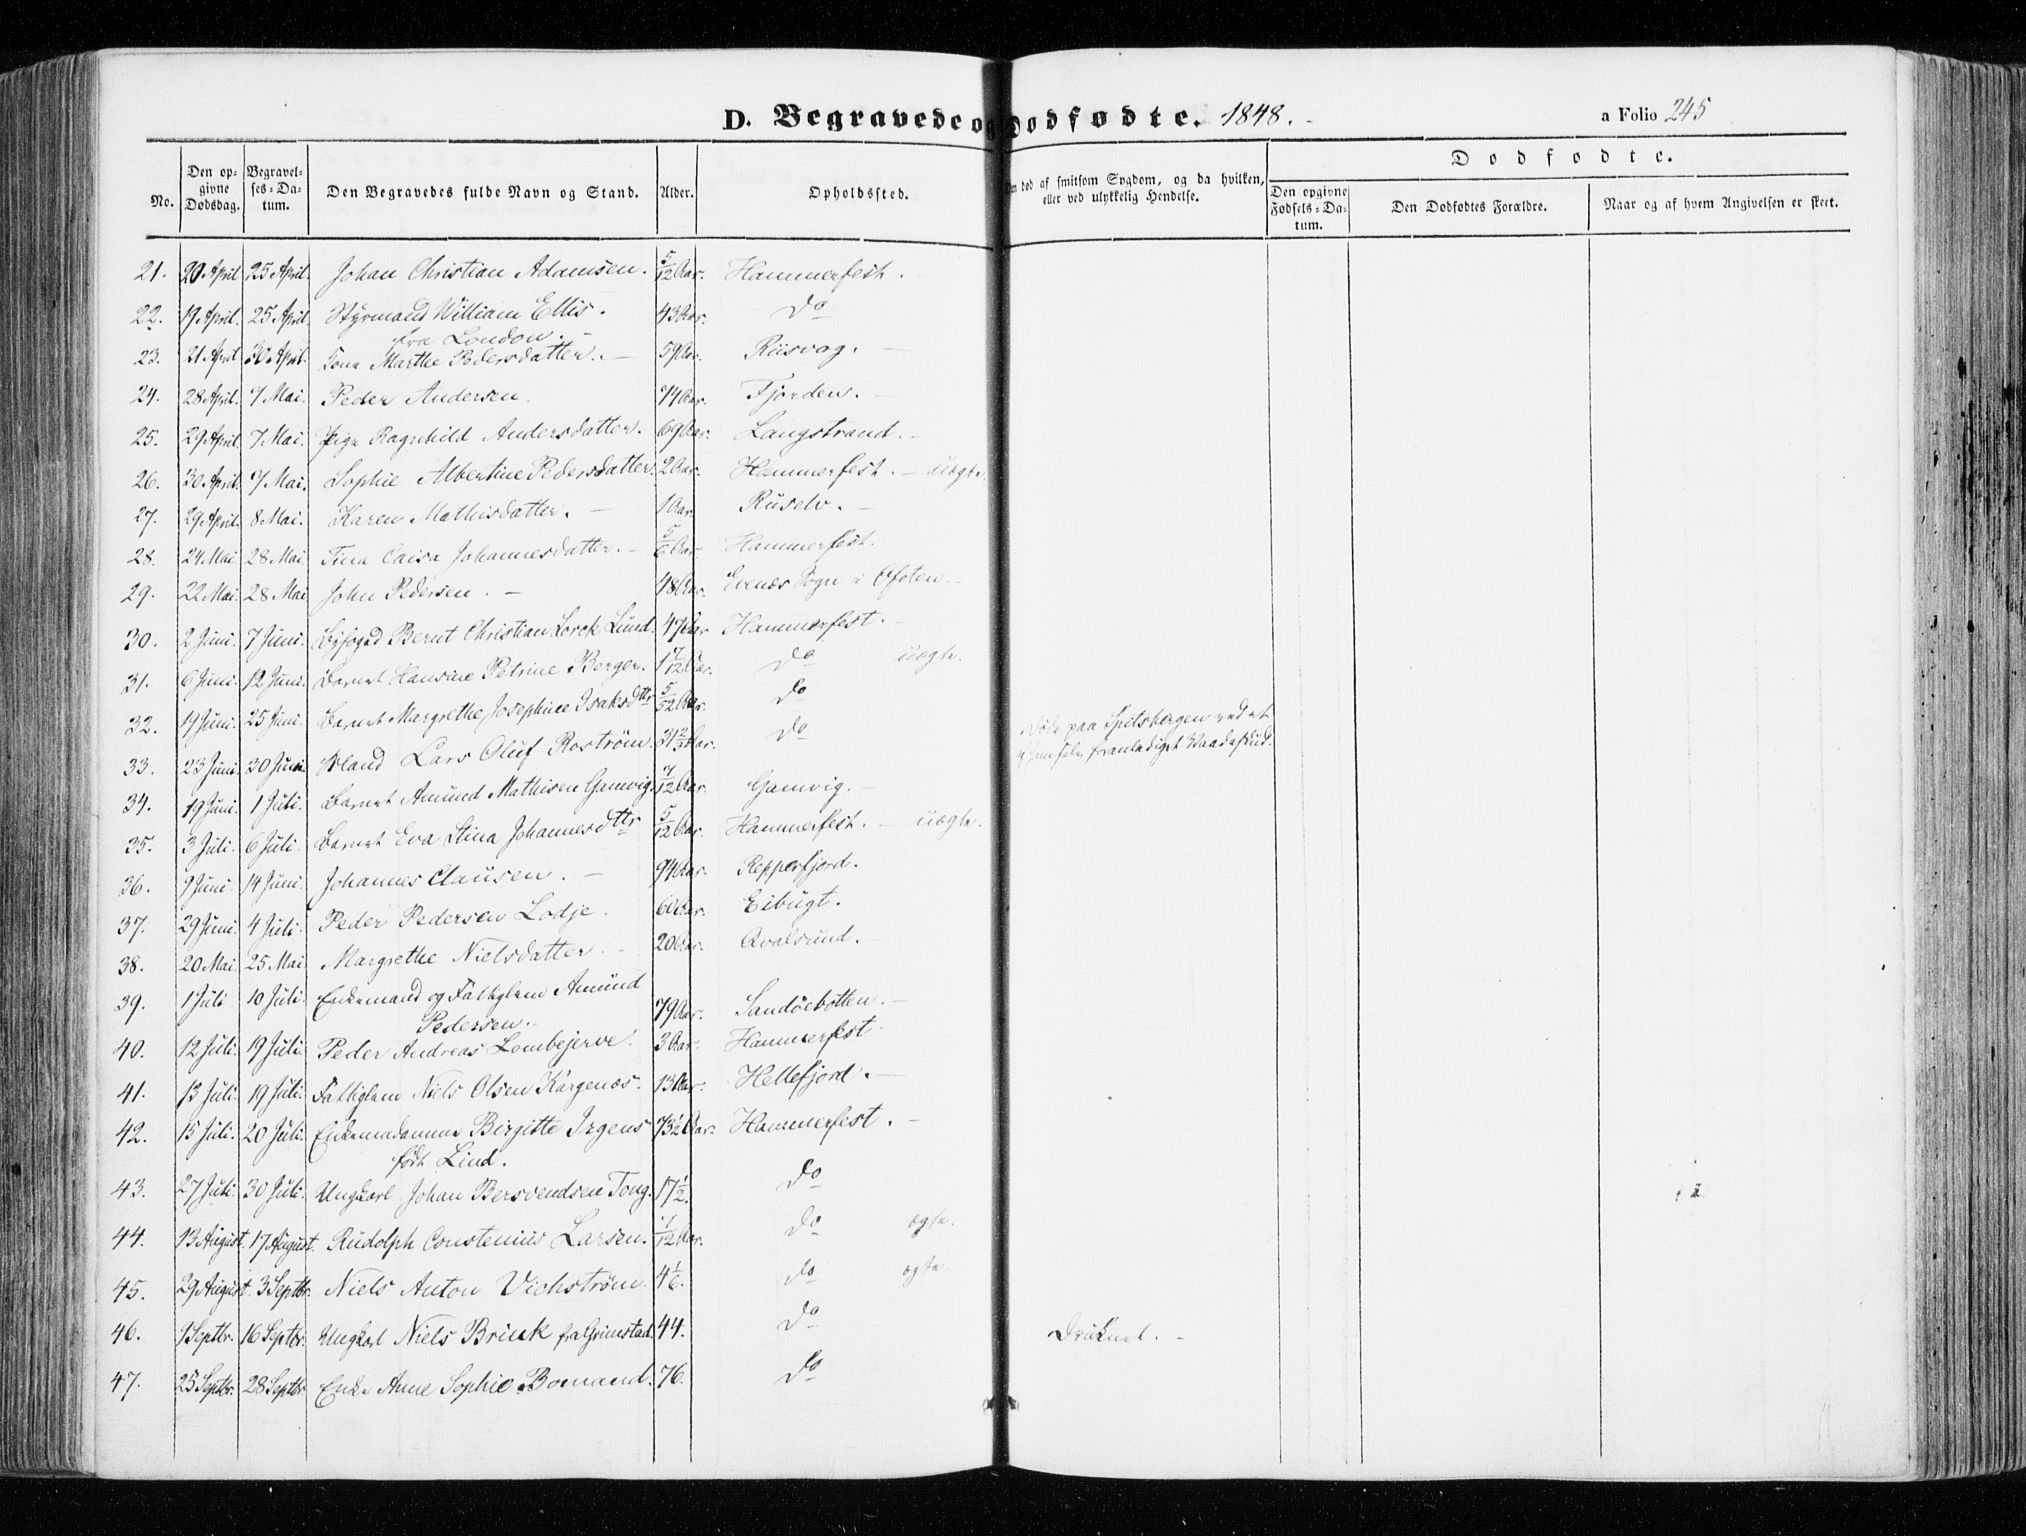 D. Begravede og Dødfødte. 1848.
a Folio 245
No.
Den opgivne Dødsdag.
Begravelses-Datum.
Den Begravedes fulde Navn og Stand.
Alder.
Opholdssted.
død af smitsom Sygdom, og da hvilken, eller ved ulykkelig Hendelse.
Dødfødte.
Den opgivne Fødsels-Datum.
Den Dødfødtes Forældre.
Naar og af hvem Angivelsen er skeet.
21. 20 April 25 April. Johan Christian Adamsen. 5/12 Aar. Hammerfest.
22. 19 April. 25 April. Styrmand William Ellis. 43 Aar. Do
fra London.
23. 21 April 30 April. Kone Marthe Pedersdatter. 59 Aar. Riisvag.
24. 28 April. 7 Mai. Peder Andersen. 74 Aar. Fjorden.
25. 29 April 7 Mai. Pige Ragnhild Andersdatter. 69 Aar. Langstrand.
26. 30 April. 7 Mai. Sophie Albertine Pedersdatter. 2 Aar. Hammerfest. uægte.
27. 29 April. 8 Mai. Karen Mathisdatter. 1 Aar. Russelv.
28. 24 Mai 28 Mai. Tina Caisa Johannesdatter. 5/6 Aar Hammerfest.
29. 22 Mai. 28 Mai John Pedersen. 48 Aar. Evenæs Sogn i Ofoten.
30. 2 Juni. 7 Juni. Byfoged Bernt Christian Lorck Lund. 47 Aar Hammerfest.
31. 6 Juni. 12 Juni. Barnet Hansine Petrine Berger. 1 7/12 Aar. Do uægte.
32. 19 Juni. 25 Juni. Barnet Margrethe Josephine Isaksdttr 5/52 Aar. Do
33. 23 Juni. 30 Juni. Lars Oluf Rostrøm 31 2/3 Aar. Do Døde paa Spitsbergen ved et
foranlediget Vaadeskud.
34. 19 Juni. 1 Juli. Barnet Amund Mathisen Gamvig. 7/12 Aar. Gamvig.
35. 3 Juli. 6 Juli. Barnet Eva Stina Johannesdttr 5/12 Aar. Hammerfest. uægte.
36. 9 Juni. 14 Juni. Johannes Clausen. 94 Aar. Repperfjord.
37. 29 Juni. 4 Juli. Peder Pedersen Lodje. 60 Aar. Eibugt.
38. 20 Mai. 25 Mai Margrethe Nielsdatter. 20 Aar. Qvalsund.
39. 1 Juli 10 Juli. Enkemand og Fattiglem Amund
Pedersen. 79 Aar. Sandøebotten.
40. 12 Juli. 19 Juli. Peder Andreas Lombejerve. 3 Aar. Hammerfest
41. 13 Juli. 19 Juli. Fattiglem Niels Olsen Kargenæs. 13 Aar. Hellefjord.
42. 15 Juli. 20 Juli. Enkemadamme Birgitte Irgens 73 1/2 Aar. Hammerfest.
født Lind.
43. 27 Juli. 30 Juli. Ungkarl Johan Bersvendsen Tong. 17 1/2. Do
44. 13 August. 17 August. Rudolph Constenius Larsen. 1/12 Aar. Do ægte.
45. 29 August. 3 Septbr. Niels Anton Vichstrøm. 4 1/6. Do ægte.
46. 9 Septbr. 16 Septbr. Ungkarl Niels Brink fra Grimstad. 44. Do Druknet.
47. 25 Septbr. 28 Septbr Enke Anne Sophie Bomand. 76. Do